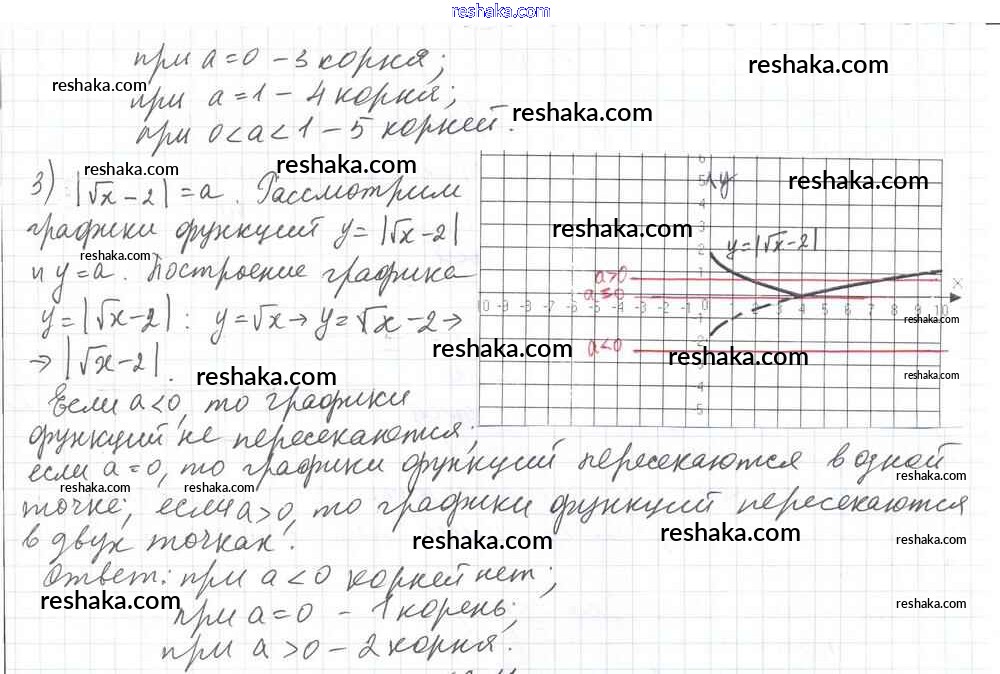 reshaka.com
при a=0 – 3 корня;
reshaka.com
reshaka.com
при a=1 – 4 корня;
reshaka.com
при 0<a<1 – 5 корней.
reshaka.com
reshaka.com
3) |√x – 2| = a. Рассмотрим
reshaka.com
графики функций y = |√x – 2|
reshaka.com
reshaka.com
и y=a. Построение графика
y = |√x – 2| : y = √x → y = √x – 2 →
reshaka.com
→ |√x – 2|.
reshaka.com
6
y
4
3
2
y=|√x-2|
a>0
a=0
x
-10 -9 -8 -7 -6 -5 -4 -3 -2 -1 0 2 4 5 6 7 8 9 10
reshaka.com
a<0
reshaka.com
reshaka.com
-4
-5
Если a<0, то графики
функций не пересекаются;
если a=0, то графики функций пересекаются в одной
reshaka.com
reshaka.com
reshaka.com
точке; если a>0, то графики функций пересекаются
в двух точках.
reshaka.com
reshaka.com
reshaka.com
Ответ: при a<0 корней нет;
reshaka.com
reshaka.com
при a=0 – 1 корень;
при a>0 – 2 корня.